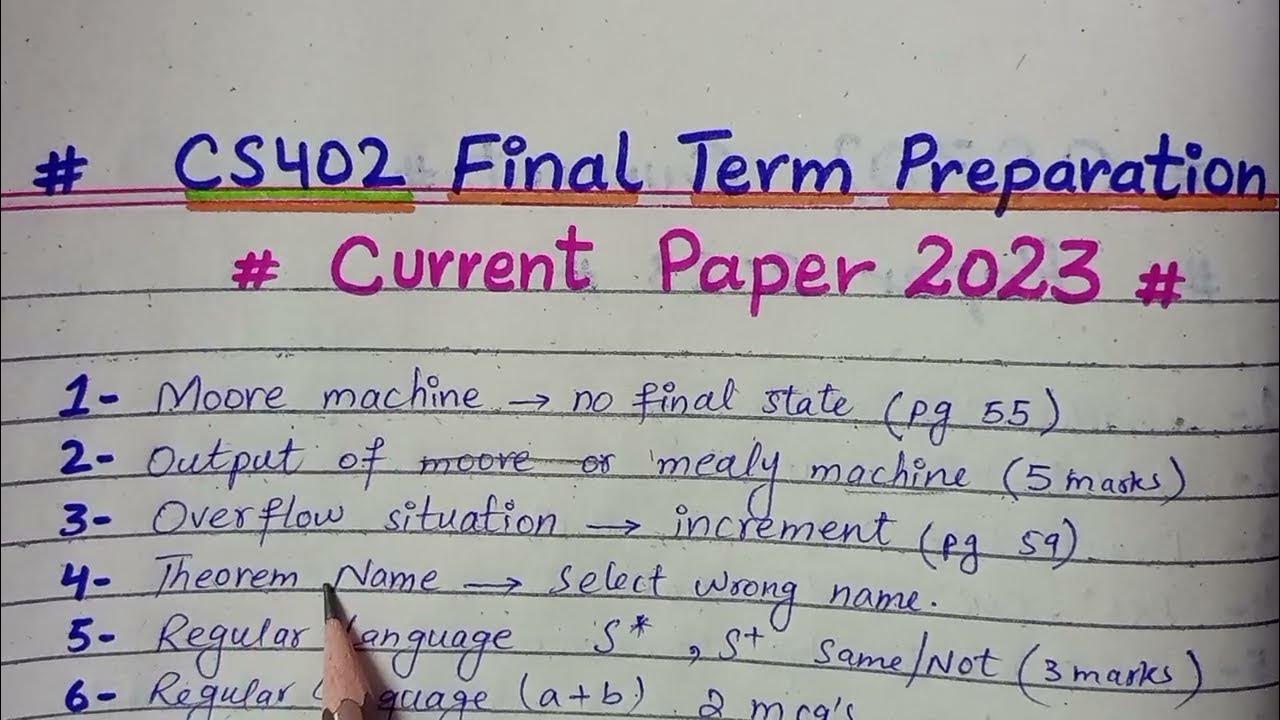 # CS402 Final Term Preparation
# Current Paper 2023 #
1- Moore machine → no final state (pg 55)
2- Output of moore or mealy machine (5 marks)
3- Overflow situation → increment (pg 59)
4- Theorem Name → select wrong name.
5- Regular language S* , S+ same/Not (3 marks)
6- Regular (a+b) 2 mcq's